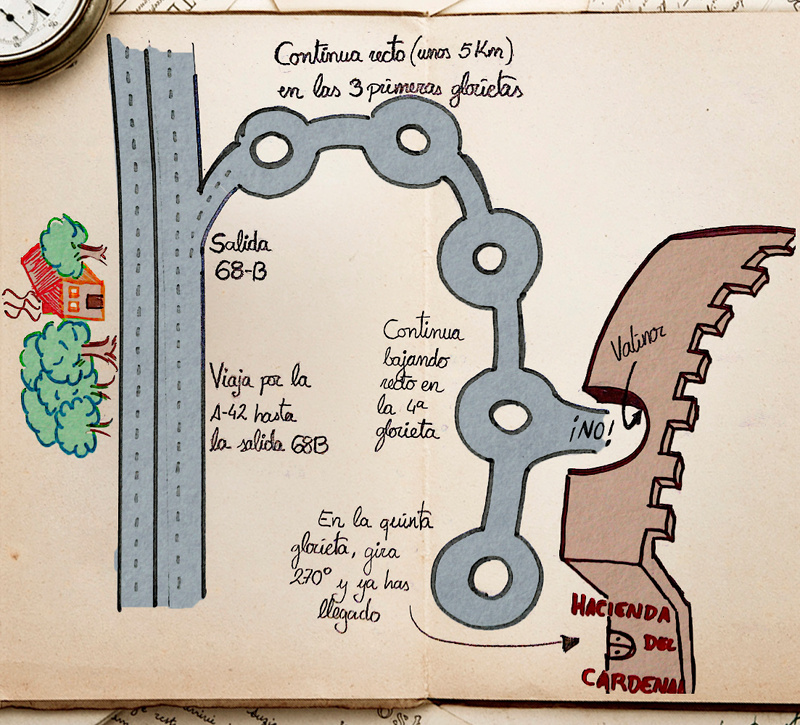 Continua recto (unos 5 Km)
en las 3 primeras glorietas
Salida
68-B
Viaja por la
A-42 hasta
la salida 68B
Continua
bajando
recto en
la 4ª
glorieta
¡NO!
Valinor
En la quinta
glorieta, gira
270º y ya has
llegado
HACIENDA
DEL
CARDENAL